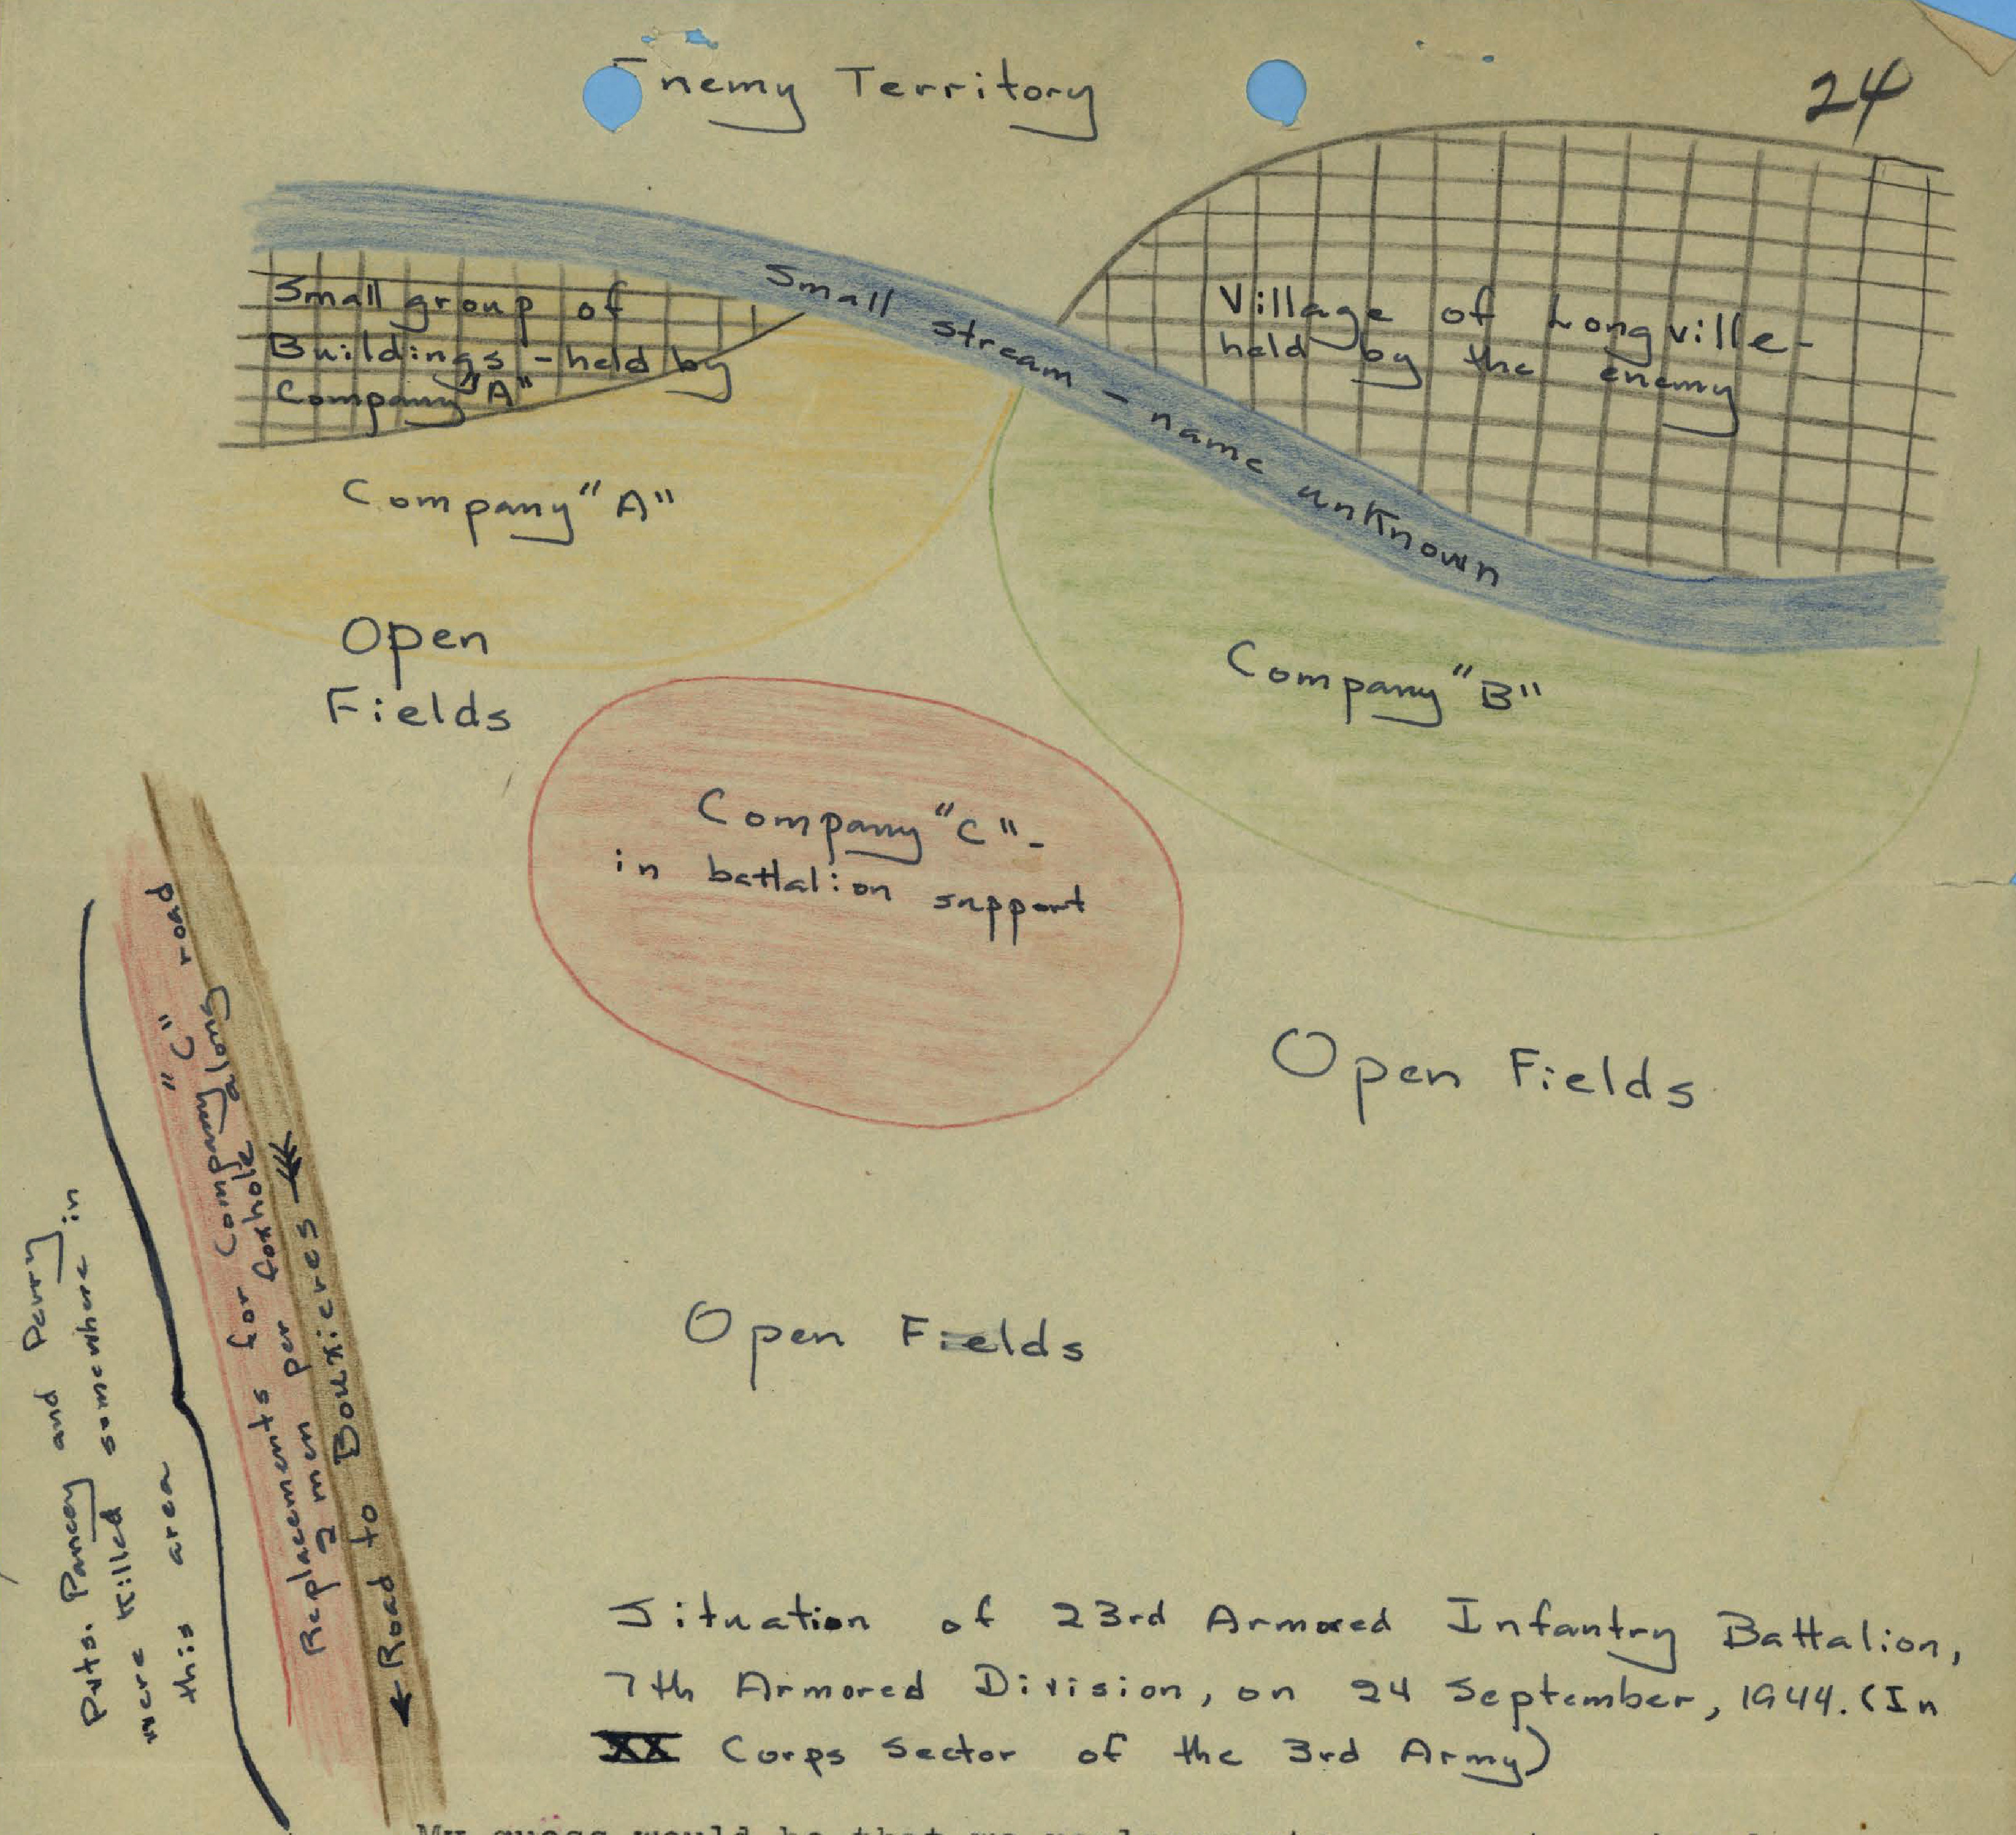 Enemy Territory
24
Small group of
Buildings - held by
Company "A"
Small stream - name unknown
Village of Longville-
held by the enemy
Company "A"
Open
Fields
Company "B"
Company "C"-
in battalion support
Open Fields
Open Fields
Pvts. Pancey and Perry
were killed somewhere in
this area
Replacements for Company "C"
2 men per foxhole along road
Road to Bouxieres
Situation of 23rd Armored Infantry Battalion,
7th Armored Division, on 24 September, 1944. (In
XX Corps Sector of the 3rd Army)
My guess would be that we